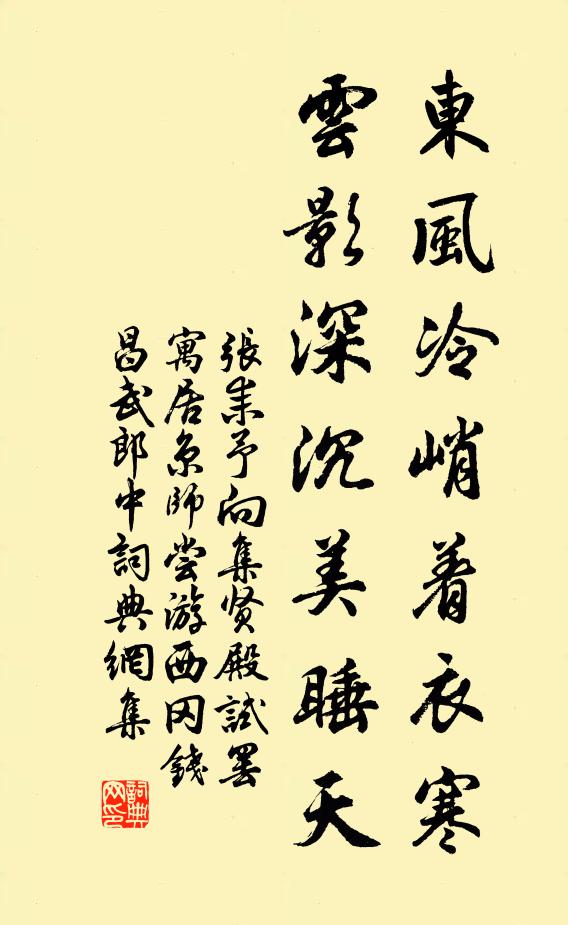 東風冷峭着衣寒
雲影深沉美睡天
張耒予向集贤殿試罢
寓居京師尝游西冈錢
昌武郎中詞典網集
詞典
网印